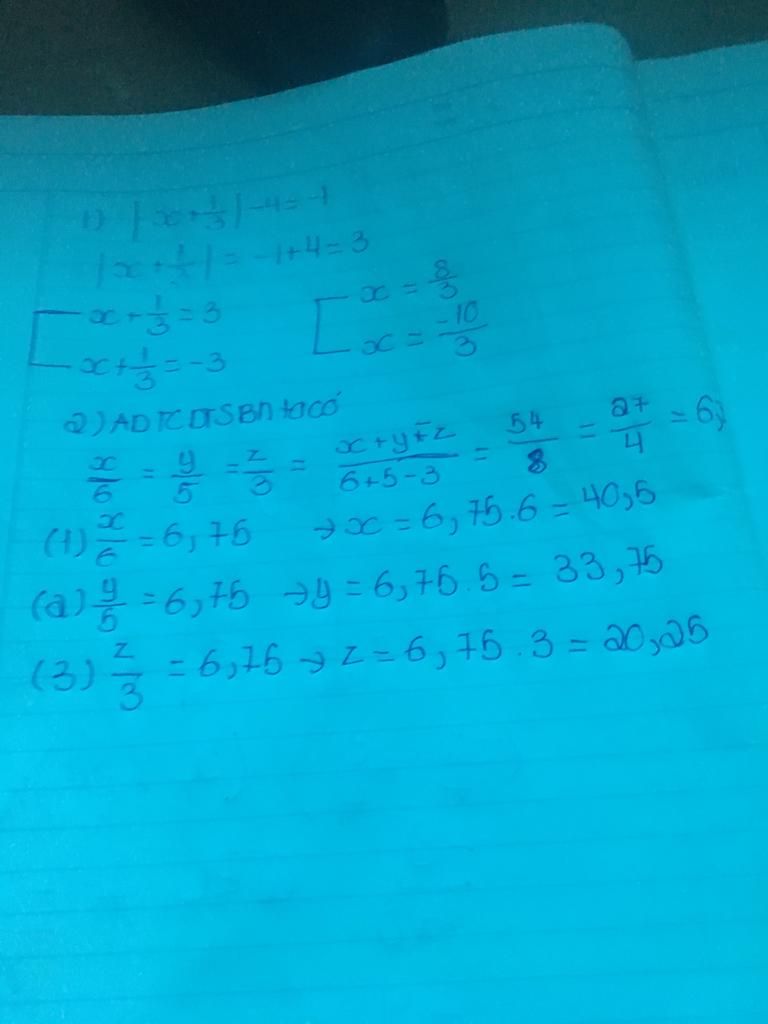 1) |x + 1/3| - 4 = -1
|x + 1/3| = -1 + 4 = 3
x + 1/3 = 3 x = 8/3
x + 1/3 = -3 x = -10/3
2) ADTCDTSBN ta có
x/6 = y/5 = z/3 = x+y-z/6+5-3 = 54/8 = 27/4 = 6,
(1) x/6 = 6,75 → x = 6,75.6 = 40,5
(2) y/5 = 6,75 → y = 6,75.5 = 33,75
(3) z/3 = 6,75 → z = 6,75.3 = 20,25